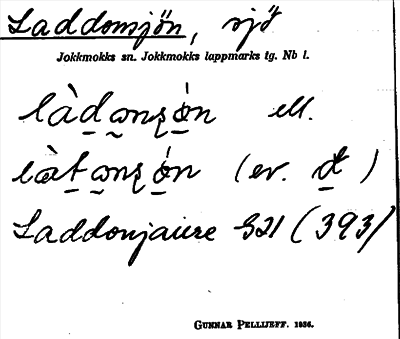 Laddomsjön, sjö
Jokkmokks sn. Jokkmokks lappmarks tg. Nb l.
làd̠ɷnʂȯ̠n ell.
làt̠ɷnʂȯ̠n (ev. đ̠)
Laddonjaure 321 (393)
GUNNAR PELLIJEFF. 1956.